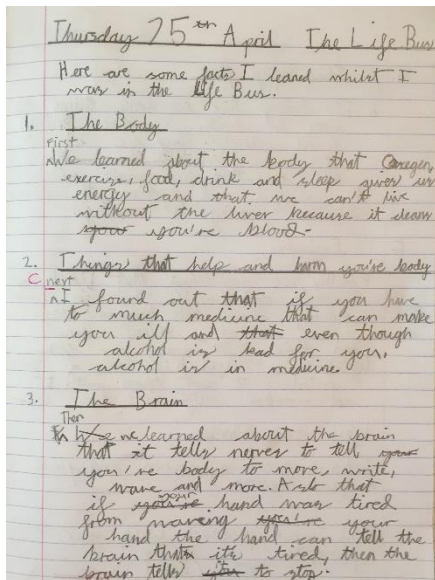 Thursday 25th April The Life Bus
Here are some facts I leaned whilst I
was in the life Bus.
1. The Body
First
We learned about the body that Oxegen,
exercise, food, drink and sleep gives us
energy and that, we can't live
without the liver because it cleans
your you're blood.
2. Things that help and harm you're body
C next
I found out that if you have
to much medicine that can make
you ill and that even though
alcohol is bad for you,
alcohol is in medicine.
3. The Brain
Then
we learned about the brain
that it tells nerves to tell your
you're body to move, write,
wave and more. Also that
your
if you're hand was tired
from waving you're your
hand the hand can tell the
brain that it's tired, then the
brain tells you to stop.